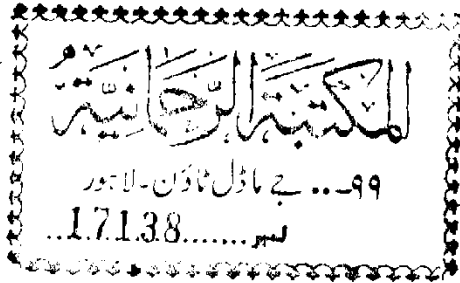 المكتبة الرحمانية
۹۹... جے ماڈل ٹاؤن۔ لاہور
نمبر.......17138...